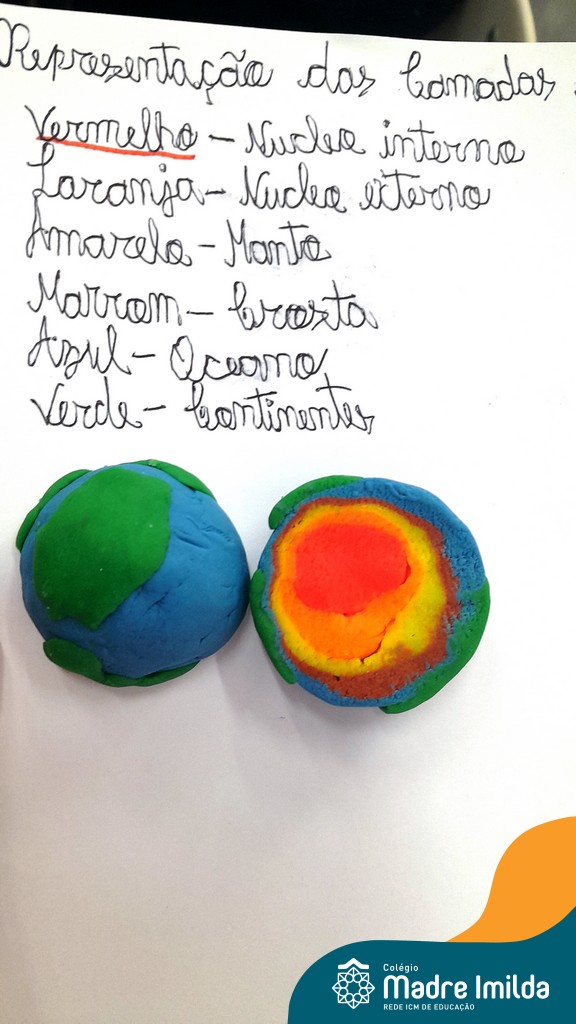 Representação das Camadas
Vermelho - Nucleo interno
Laranja - Nucleo externo
Amarelo - Manto
Marrom - Crosta
Azul - Oceano
Verde - Continentes
Colégio
Madre Imilda
REDE ICM DE EDUCAÇÃO